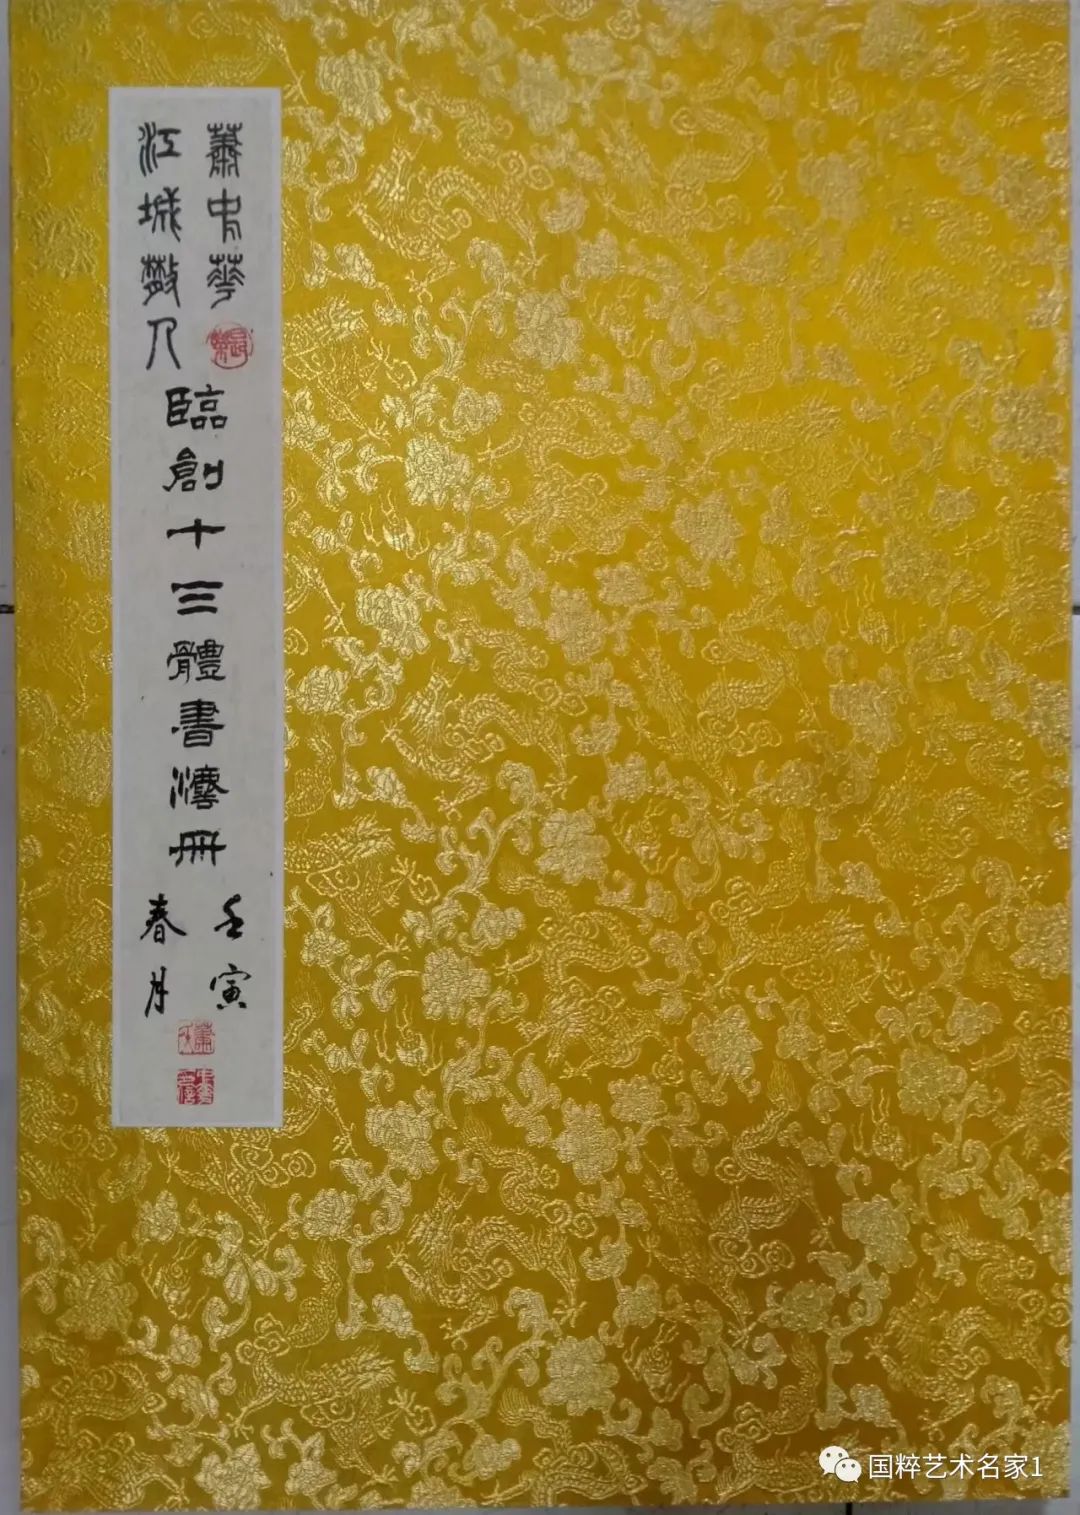 蕭中華
江城散人
臨創十三體書灋冊
壬寅
春月
国粹艺术名家1